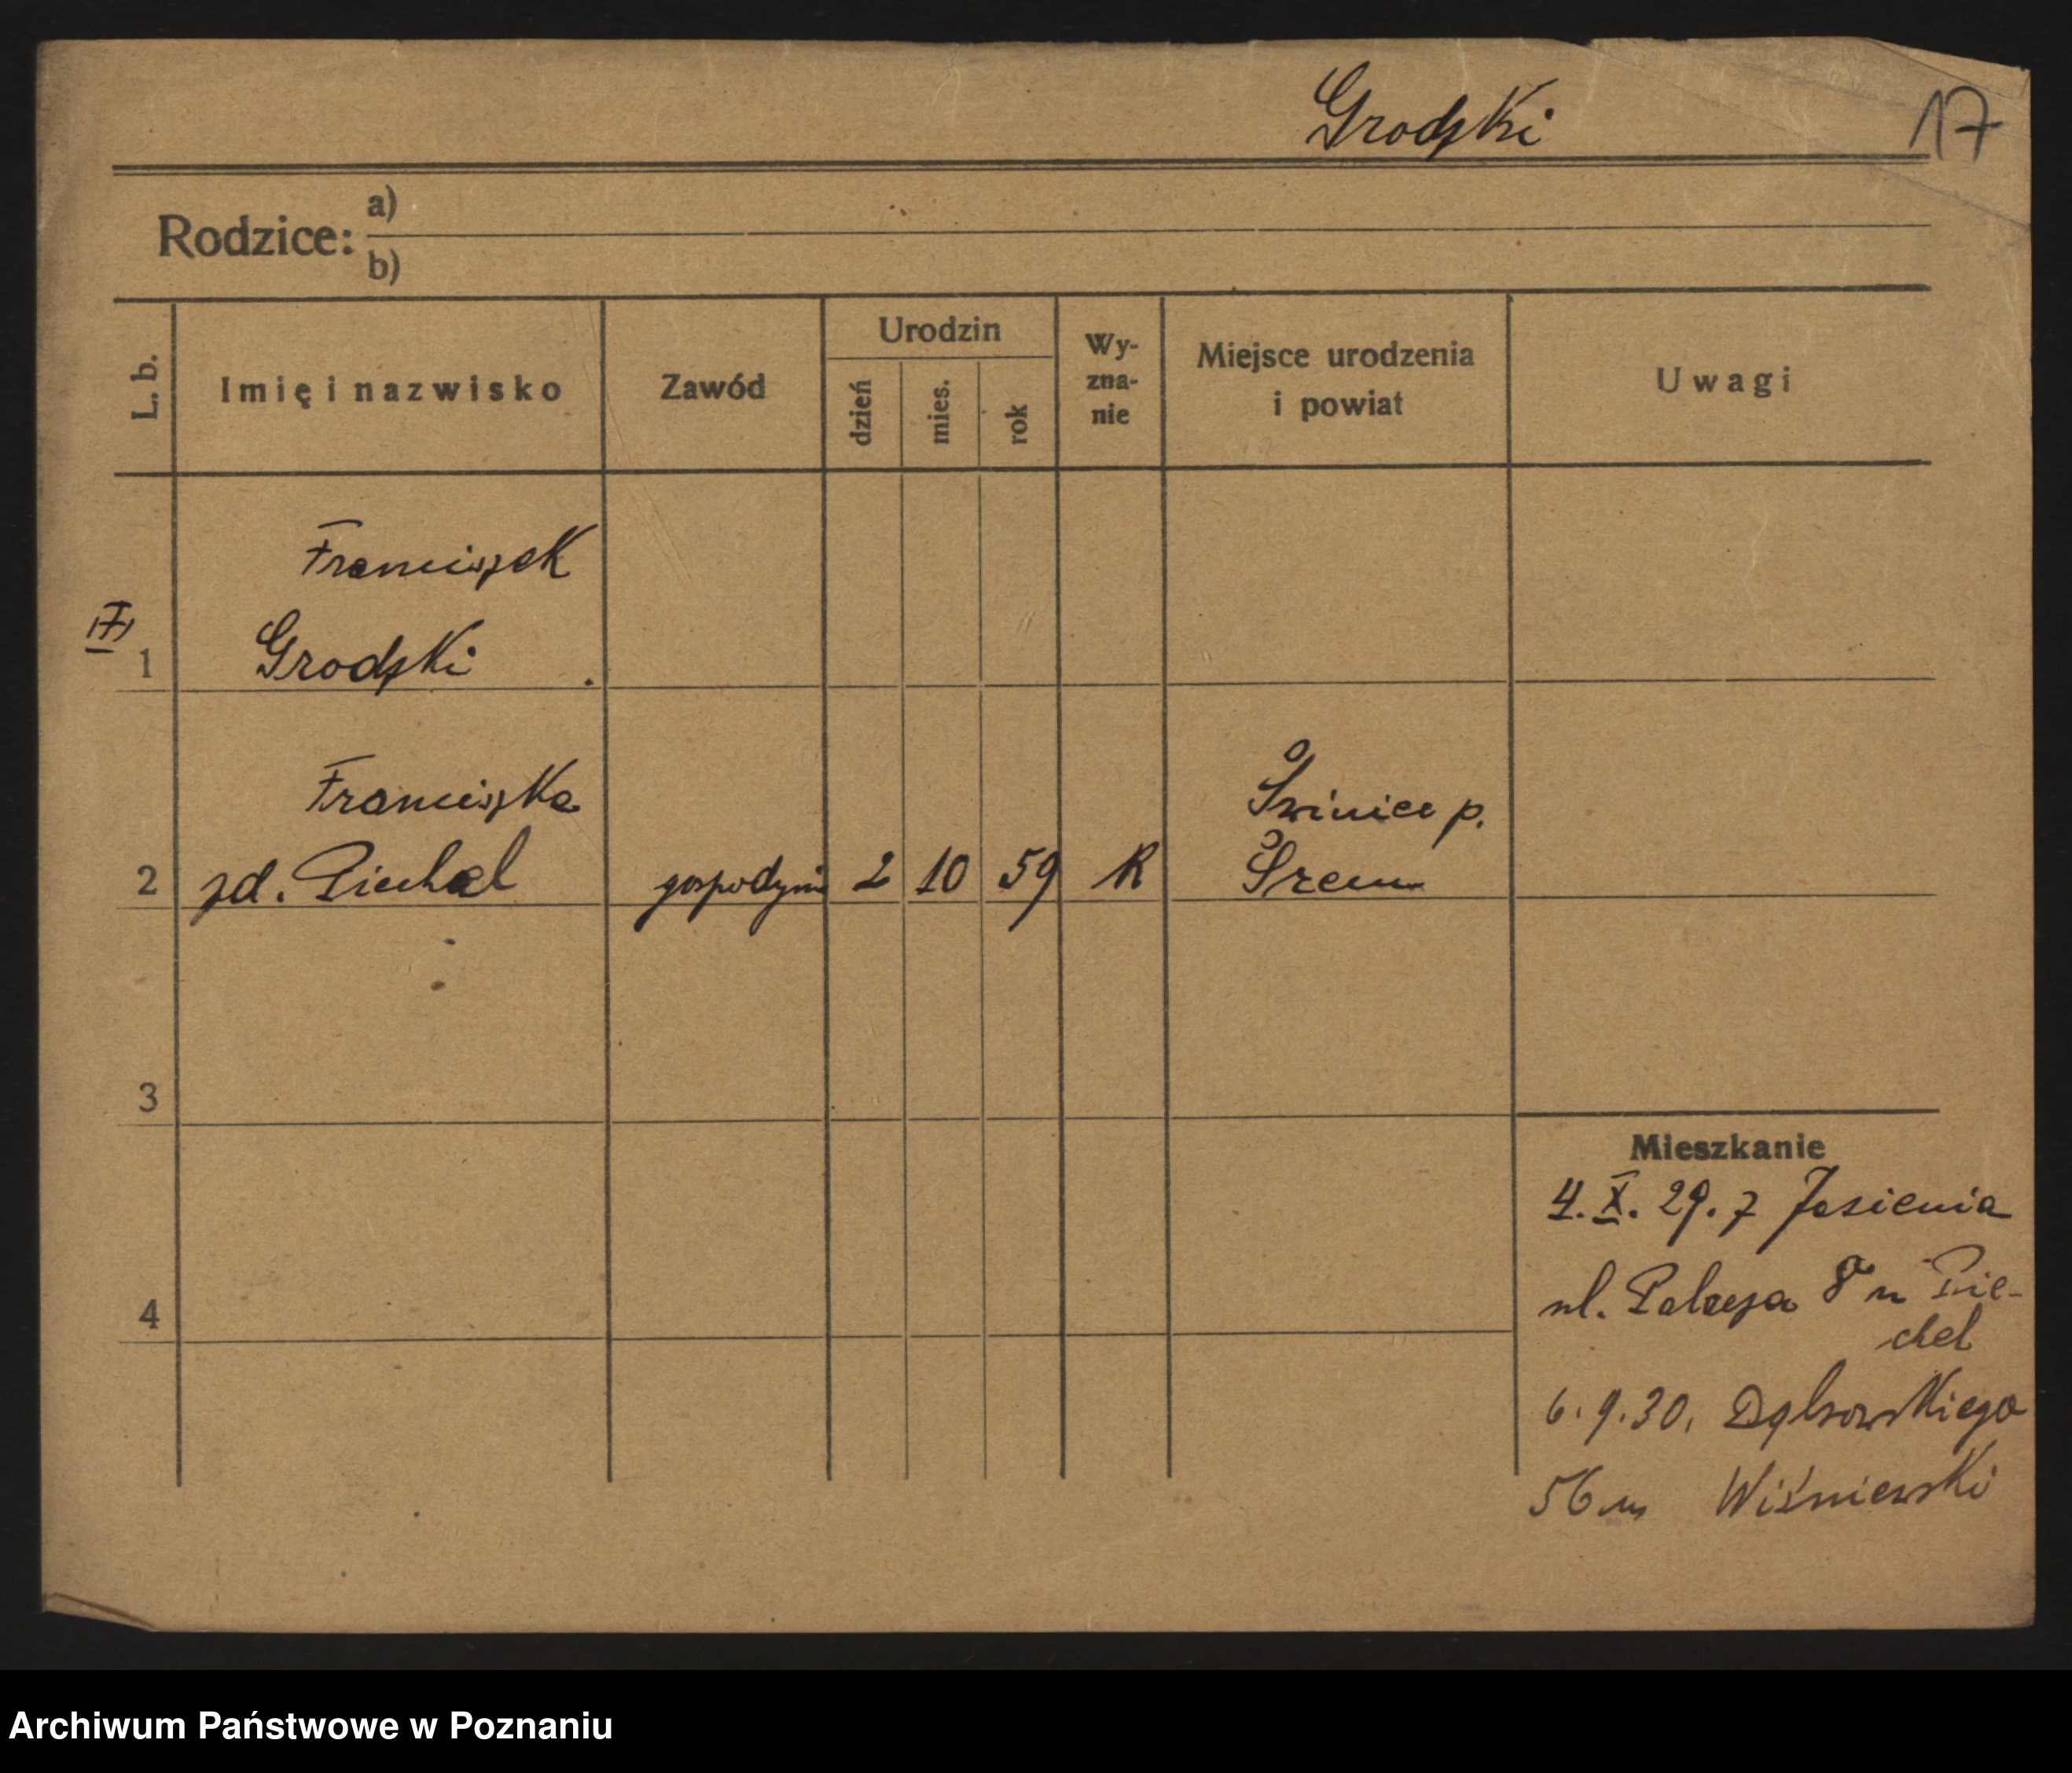 Grodzki
17
Rodzice:
a)
b)
L. b.
Imię i nazwisko
Zawód
Urodzin
dzień
mies.
rok
Wy-
zna-
nie
Miejsce urodzenia
i powiat
Uwagi
Franciszek
1 Grodzki
Franciszka
2 zd. Piechel gospodyni 2 10 59 R
p.
Śrem
3
4
Mieszkanie
4. X. 29. z Jasienia
ul. 8 m Pie-
chel
6.9.30. Dąbrowskiego
56 m Wiśniewski
Archiwum Państwowe w Poznaniu